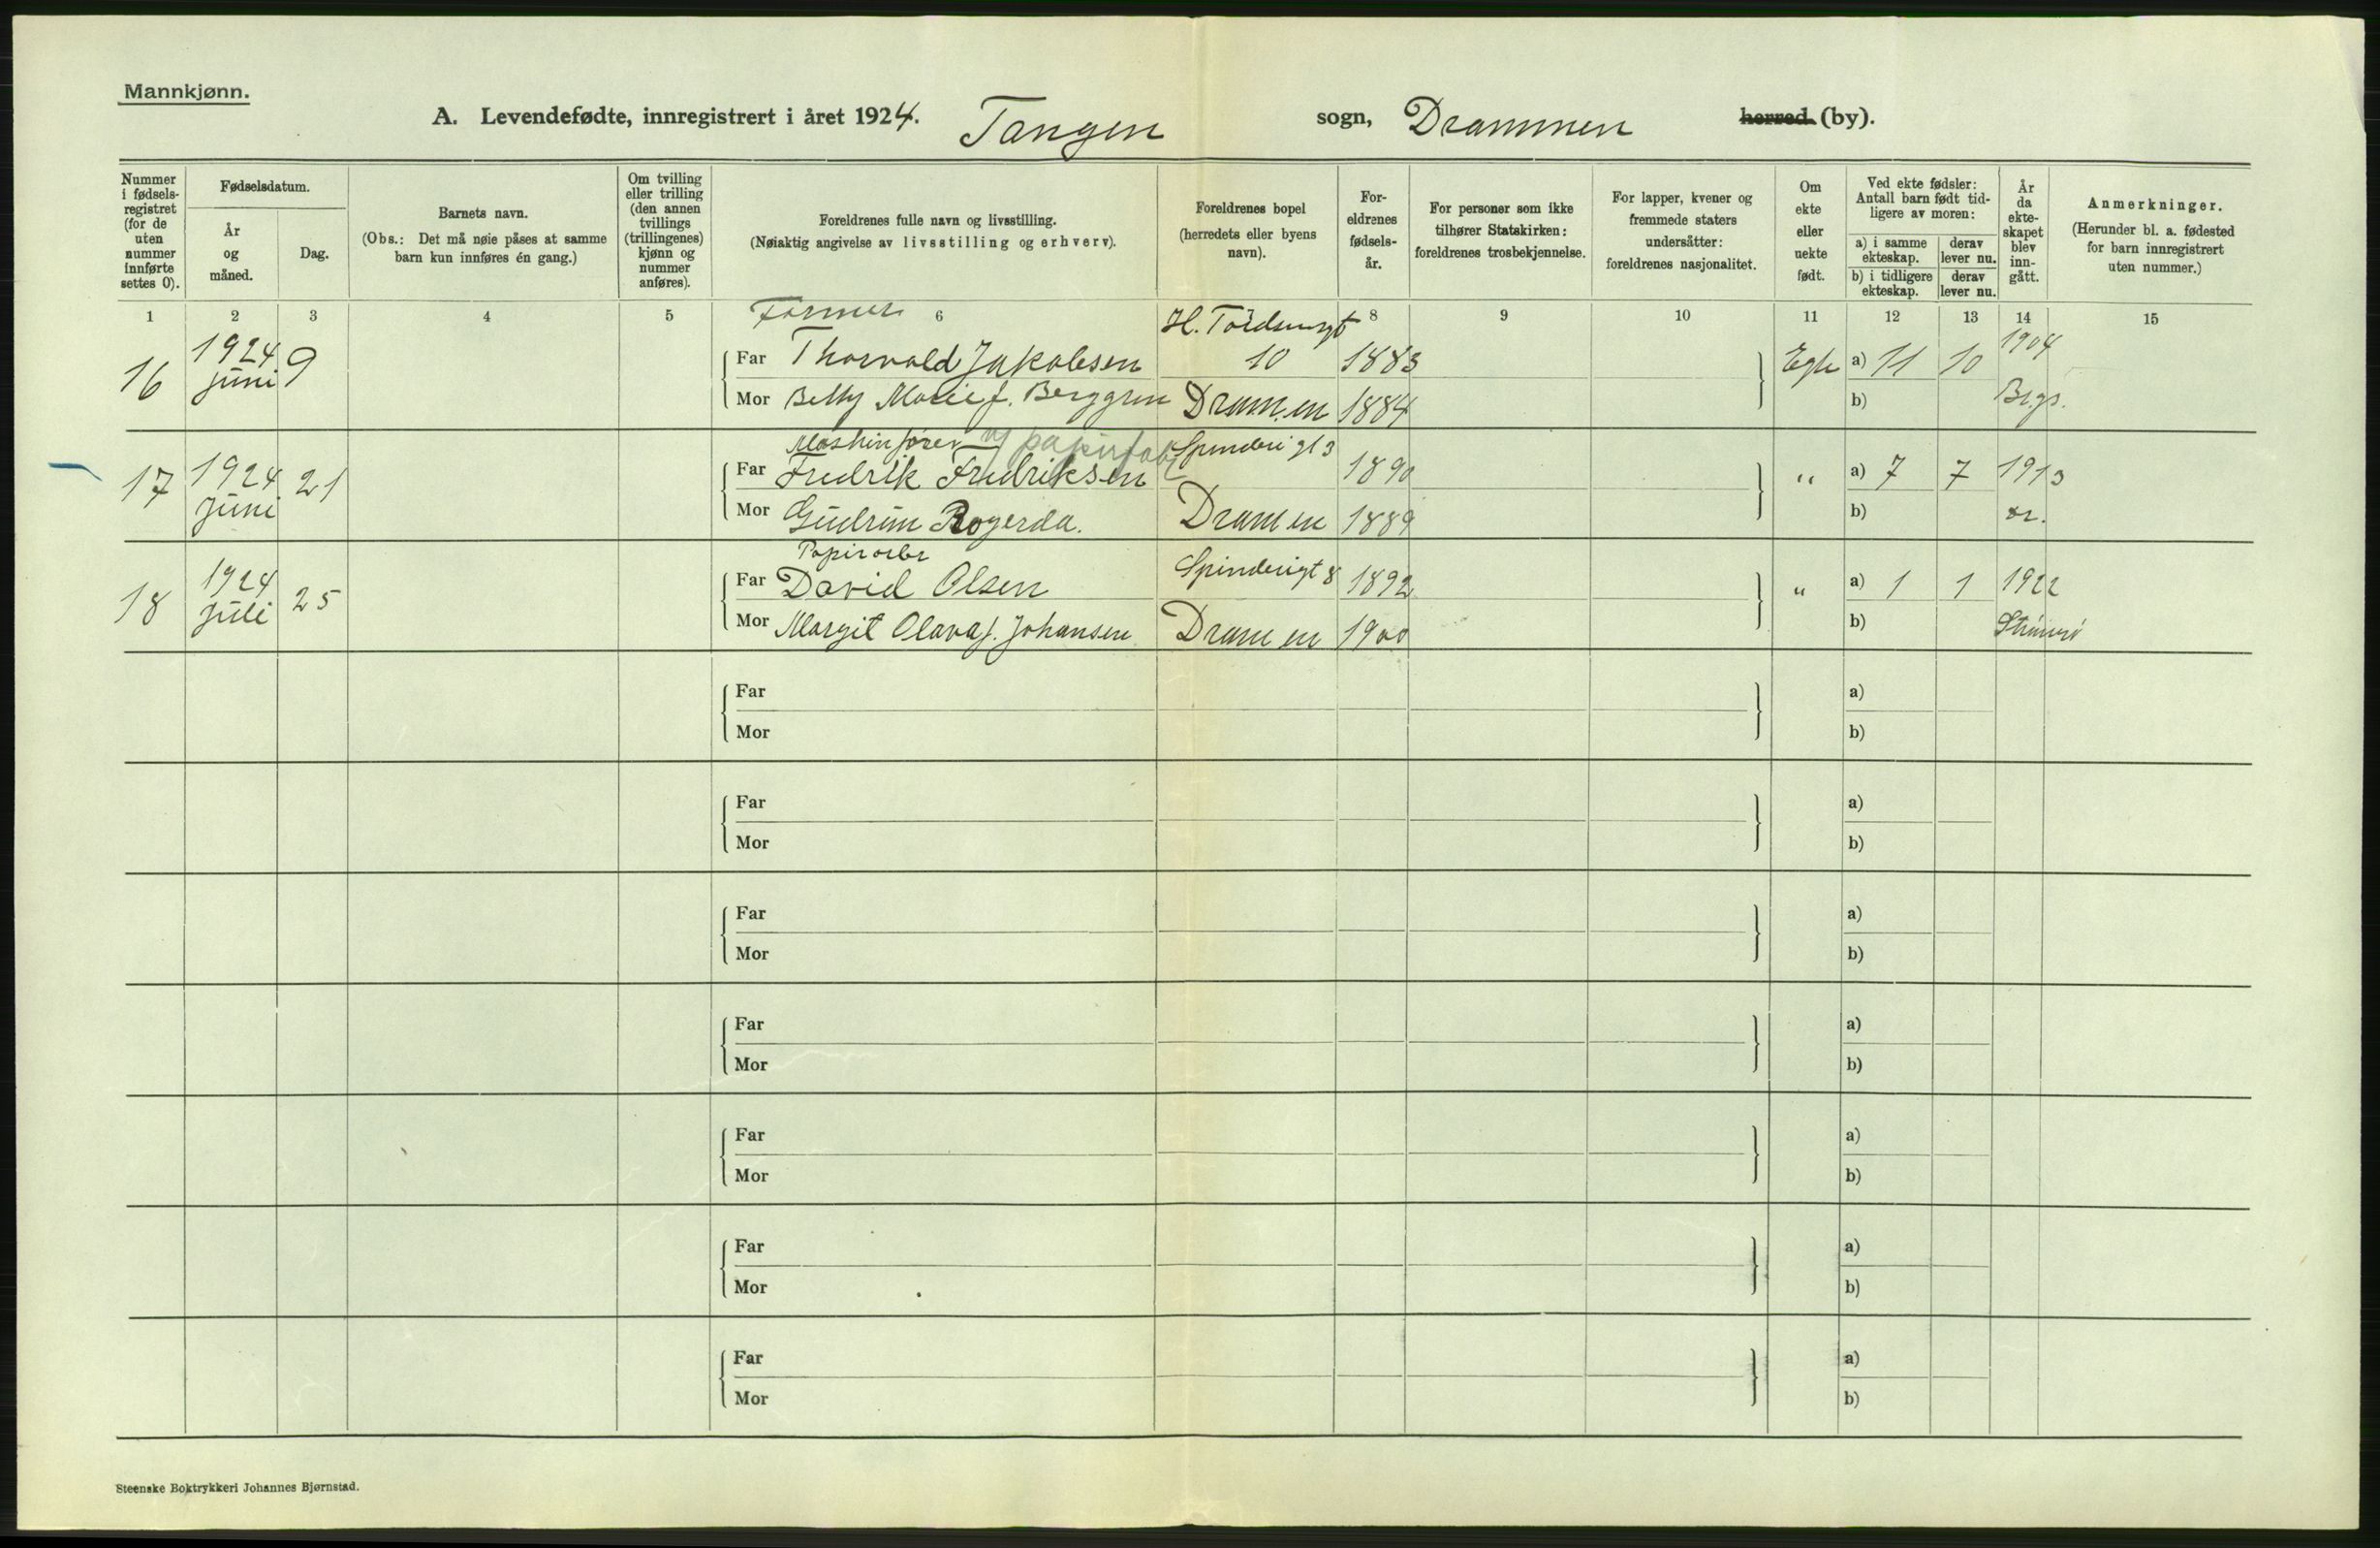 Mannkjønn.
A. Levendefødte, innregistrert i året 1924. Tangen sogn, Drammen herred (by).
Nummer i fødsels-registret (for de uten nummer innførte settes 0).
Fødselsdatum.
År og måned.
Dag.
Barnets navn.
(Obs.: Det må nøie påses at samme barn kun innføres én gang.)
Om tvilling eller trilling (den annen tvillings (trillingenes) kjønn og nummer anføres).
Foreldrenes fulle navn og livsstilling.
(Nøiaktig angivelse av livsstilling og erhverv).
Foreldrenes bopel (herredets eller byens navn).
For-eldrenes fødsels-år.
For personer som ikke tilhører Statskirken: foreldrenes trosbekjennelse.
For lapper, kvener og fremmede staters undersåtter: foreldrenes nasjonalitet.
Om ekte eller uekte født.
Ved ekte fødsler: Antall barn født tid-ligere av moren:
a) i samme ekteskap.
derav lever nu.
b) i tidligere ekteskap.
derav lever nu.
År da ekte-skapet blev inn-gått.
Anmerkninger.
(Herunder bl. a. fødested for barn innregistrert uten nummer.)
1 2 3 4 5 6 8 9 10 11 12 13 14 15
Former
16 1924 juni 9
Far Thorvald Jakobsen 10 1883 a) 11 10 1904
Mor Betty Marie f. Berggren Drammen 1884 b)
Maskinfører papirfabr Spinderigt 3
17 1924 juni 21
Far Fredrik Fredriksen 1890 " a) 7 7 1913
Mor Gudrun Rogerda. Drammen 1889 b)
Papirarbr Spinderigt 8
18 1924 juli 25
Far David Olsen 1892 " a) 1 1 1922
Mor Margit Olava f. Johansen Drammen 1900 b)
Far a)
Mor b)
Far a)
Mor b)
Far a)
Mor b)
Far a)
Mor b)
Far a)
Mor b)
Far a)
Mor b)
Far a)
Mor b)
Steenske Boktrykkeri Johannes Bjørnstad.